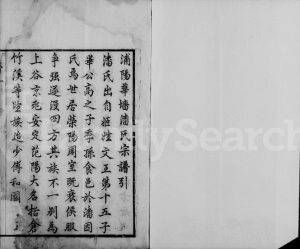 浦陽華墻潘氏宗譜引
潘氏出自姬姓文王第十五子
畢公高之子季孫食邑於潘因
氏焉世居滎陽周室既衰侯服
爭强遂後四方其族不一別為
上谷京兆安定范陽大名括倉
竹溪等望族迨少傅和國
FamilySearch